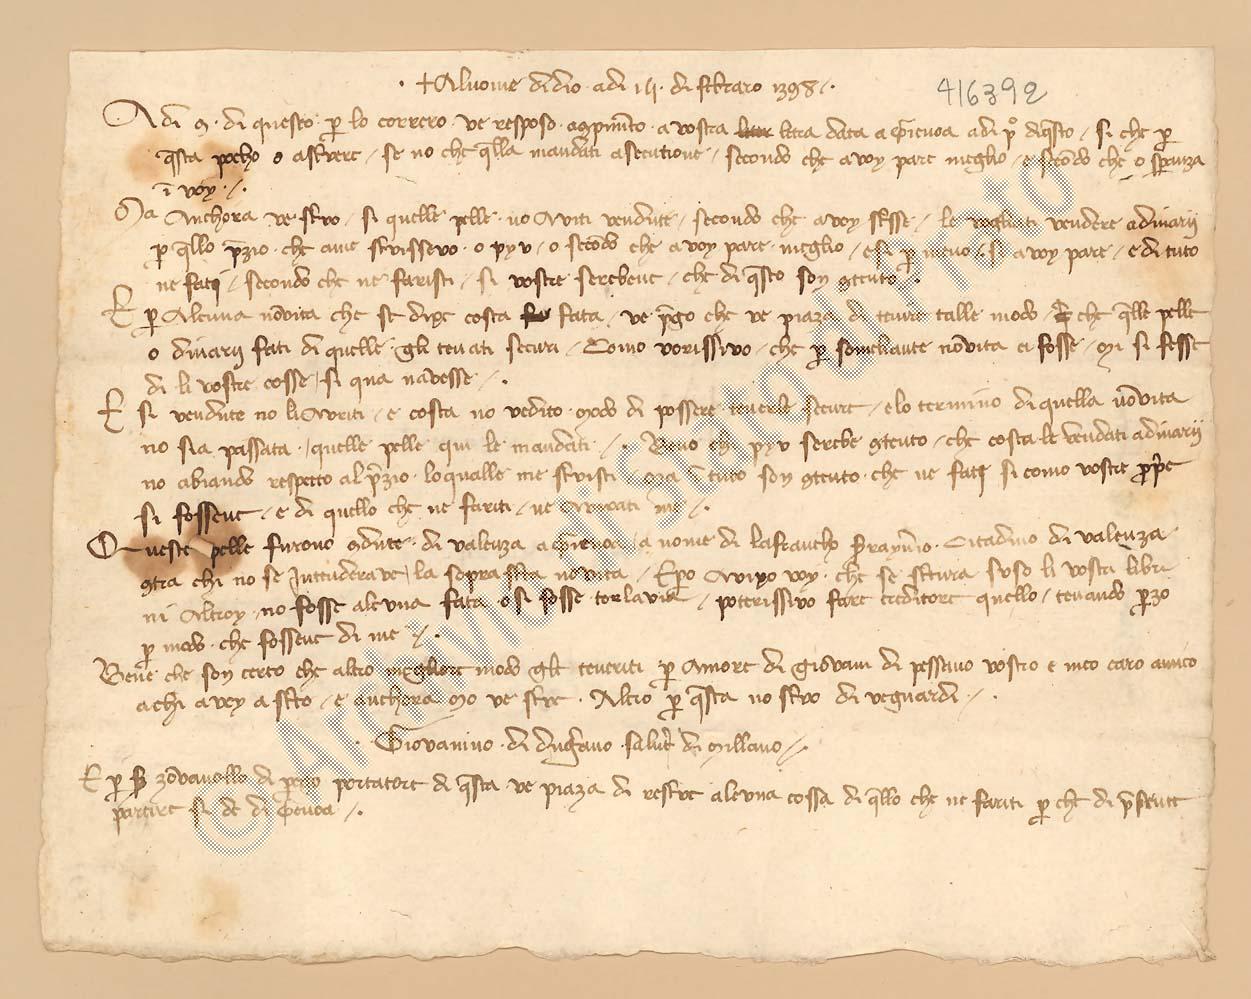 + Al nome di dio adi 14 di febraro 1398
416392
Adi 9 di questo p lo correro ve resposo a vostra letra data a Gienoa adi p° di qsto / si che p
qsta pocho o a scrivere / se no che qlla mandati a secutione / secondo che a voy pare meglio / e secodo che o speranza
i voy
Ma Anchora ve scrivo / si quelle pelle no Aviti vendute / secondo che a voy scrisse / le vogliati vendere a dinarij
p qllo pzio che ave scrissevo o py v / o secodo che a voy pare meglio / e si p meno / si a voy pare / e di tuto
ne fati / secondo che ne faristi / si vostre serebene / che di qsto son gtento
E p Alcuna novita che se dixe costa fata / ve prego che ve piaza di tenire talle modo che qlle pelle
o dinarij fati di quelle gli tenati securi / Como vorissivo / che p someliante novita ci fosse / si fesse
di li vostre cosse / si qua navesse
E si vendute no li Avriti / e costa no vedito modo di possere tenerle secure / e lo termino di quella novita
no sia passata / quelle pelle qui le mandati / Beno ch py v serebe gtento / che costa le vendati a dinarij
no abiando respetto al pzio loqualle me scrivisti / Ma i tuto son gtento che ne fati si como vostre pprie
si fosseno / e di quello che ne fariti / ne Avixati me
Queste pelle furono gdute di valenza a Gienoa / a nome di lafrancho Citadino di valenza
gtra chi no se Intenderave la sopra scta novita / Epo Avixo voy che se scritura suso li vostri libri
ni Altroy no fosse alcuna fata o si fosse tor la via / poterissivo fare creditore quello / tenando pzo
p modo che fosseno di me
Bene che son certo che altro megliore modo gli teneriti p Amore di giovani di pessano vostro e meo caro amico
a chi a voy a scto / e anchora Mo ve scrive Altro p qsta no scrivo di ve guardi
Giovanino di dugnano salute di Millano
E p zovanollo di portatore di qsta ve piaza di rescrive alcuna cossa di qllo che ne fariti p che di psente
partire si de di Genoa
© Archivio di Stato di Prato